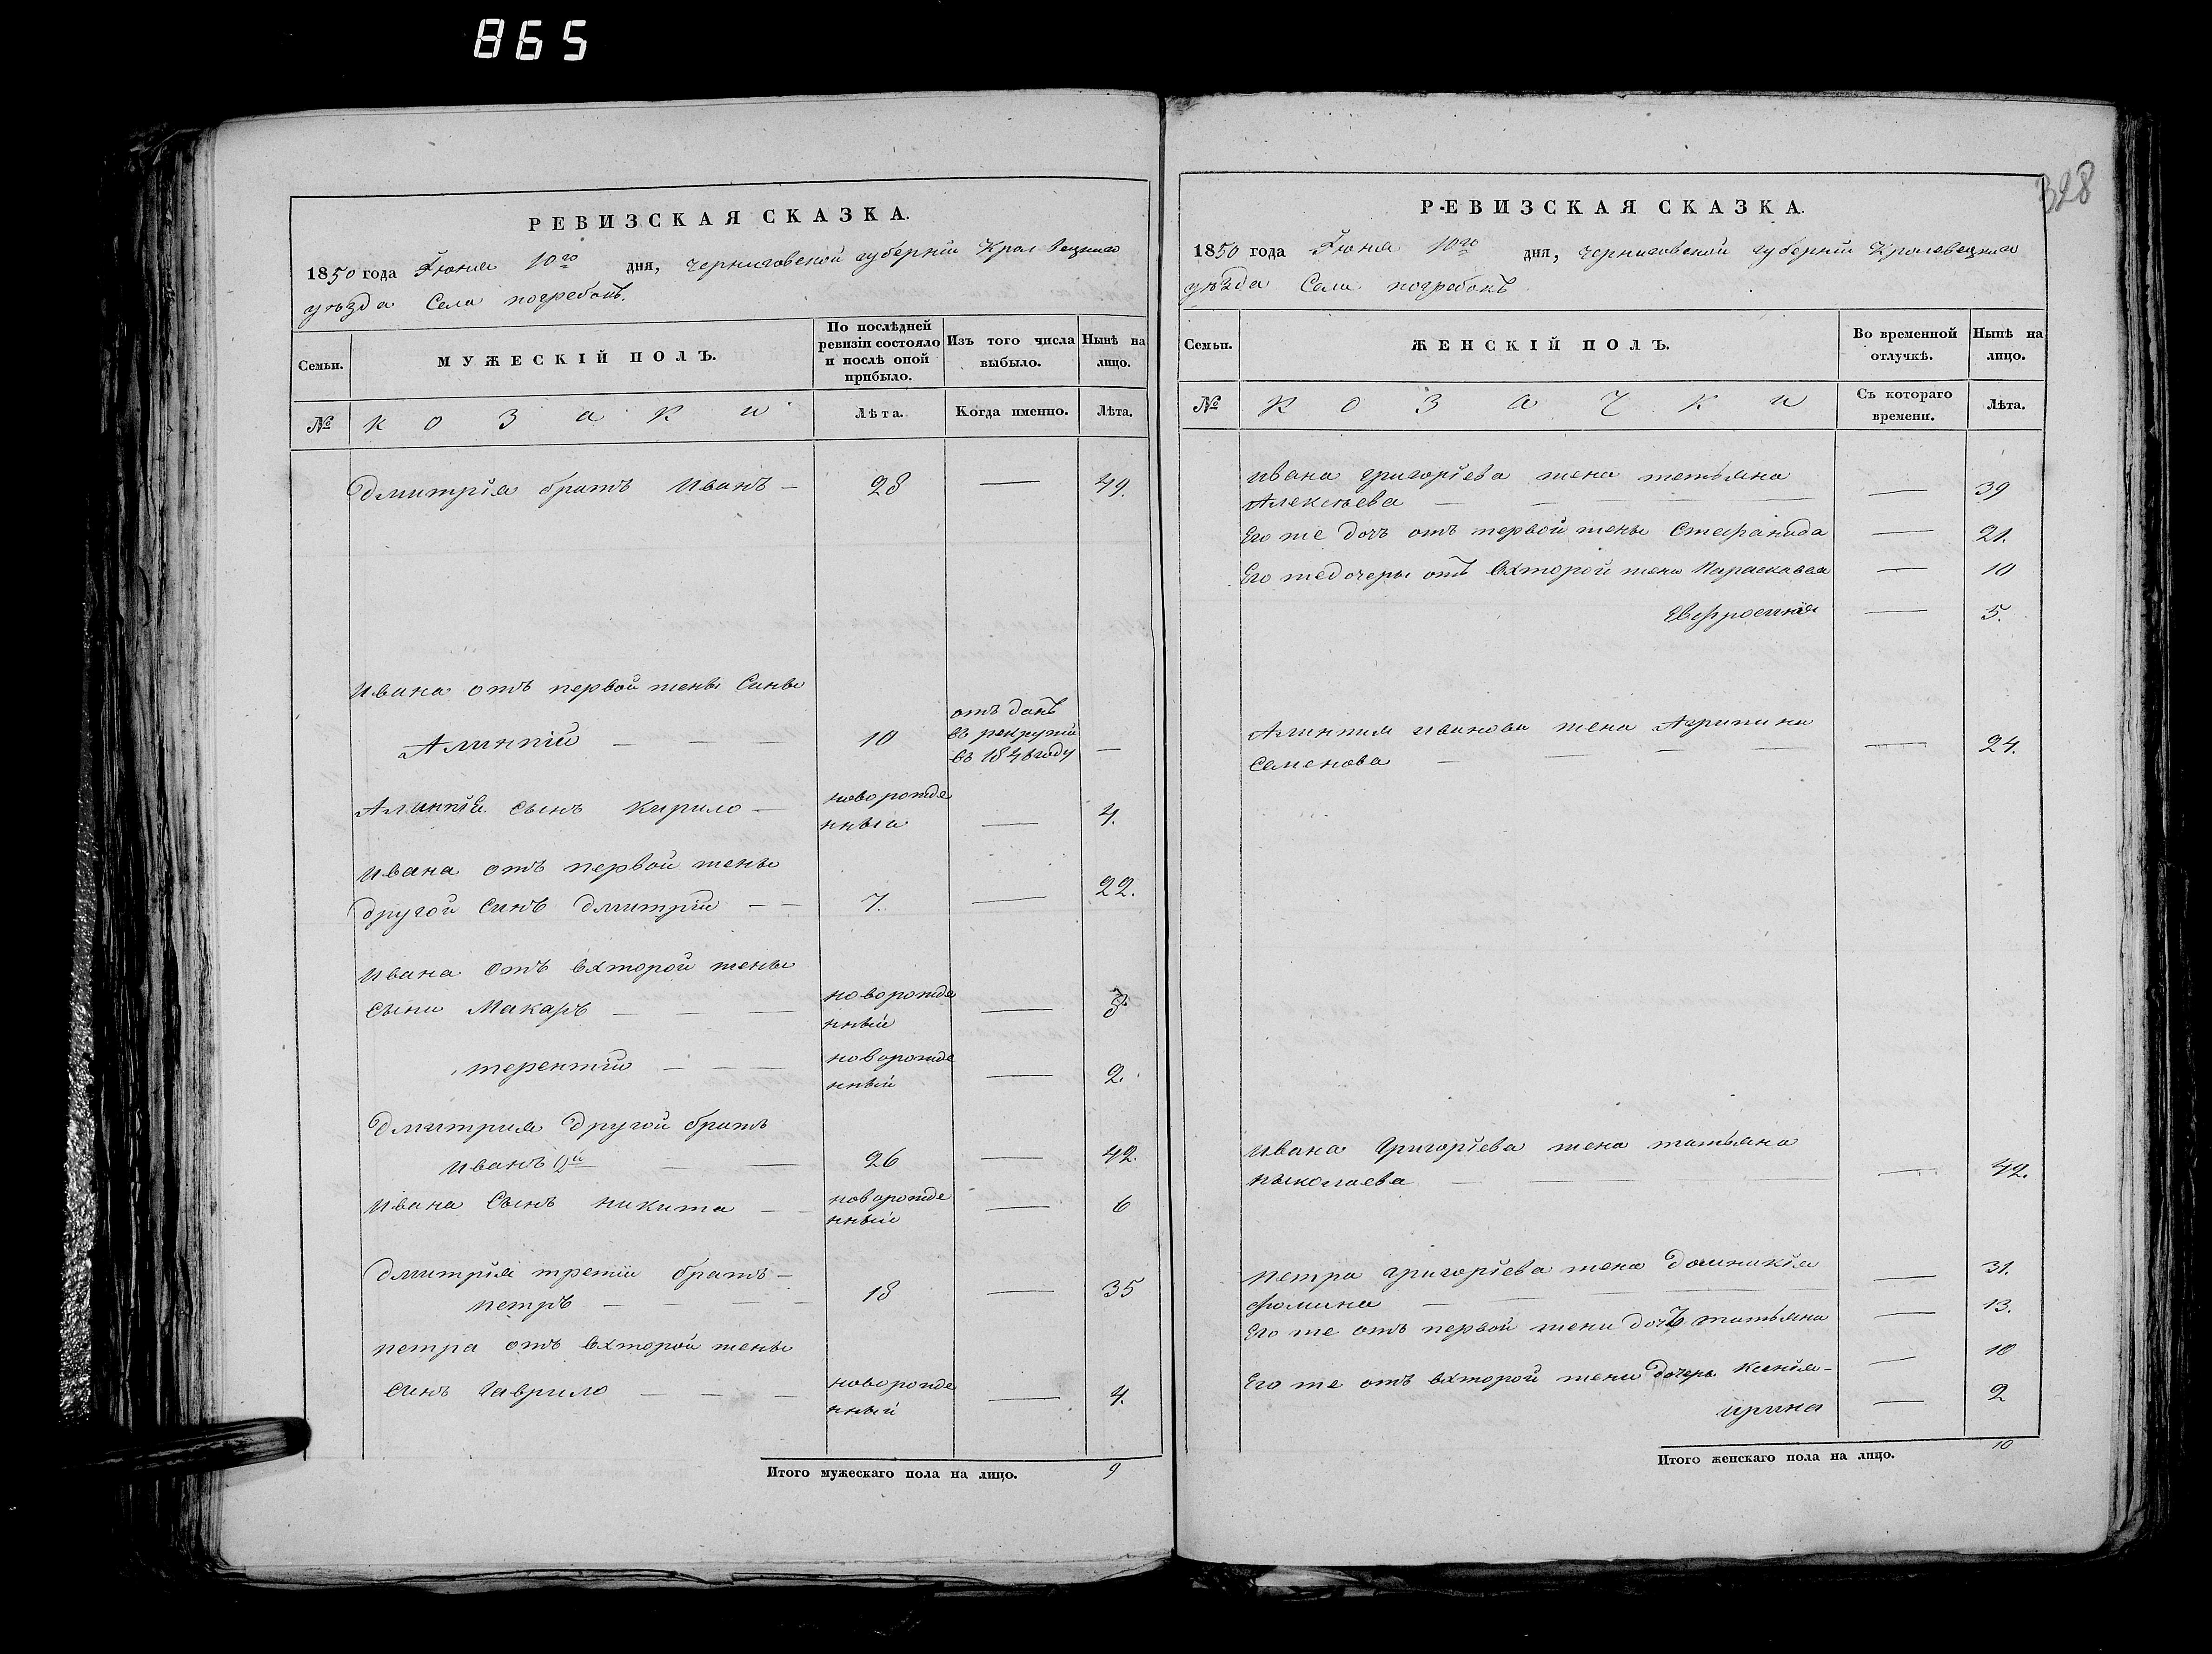 865
РЕВИЗСКАЯ СКАЗКА.
1850 года Іюня 10го дня, Черниговской губерніи Кролевецкаго
уѣзда Села погребокъ.
Семьи.
МУЖЕСКІЙ ПОЛЪ.
По послѣдней ревизіи состояло и послѣ оной прибыло.
Изъ того числа выбыло.
Нынѣ на лицо.
№
козаки
Лѣта.
Когда именно.
Лѣта.
Дмитрія братъ Иванъ — 28 — 49.
Ивана отъ первой жены Сины
Алинпій — — — 10 отъ данъ въ рекруты въ 1846 году —
Алинпія сынъ Кирило — новорожденныи — 4.
Ивана отъ первой жены
другой Синъ Дмитрій — — 7. — 22.
Ивана отъ вхторой жены
Сыни Макаръ — — — новорожденный —
терентій — — — новорожденный — 2.
Дмитрия другой братъ
Иванъ 2й — — 26 — 42.
Ивана Сынъ никита — — новорожденный — 6
Дмитрія третій братъ —
петръ — — — — 18 — 35
петра отъ вхторой жены
Синъ Гаврило — — — новорожденный — 4.
Итого мужескаго пола на лицо. 9
328
РЕВИЗСКАЯ СКАЗКА.
1850 года Іюня 10го дня, Черниговской губерніи Кролевецкаго
уѣзда Села погребокъ
Семьи.
ЖЕНСКІЙ ПОЛЪ.
Во временной отлучкѣ.
Нынѣ на лицо.
№
Козачки
Съ котораго времени.
Лѣта.
Ивана григоріева жена тетьяна
Алексѣева — — — — 39
Его же дочь отъ первой жены Стефанида — 21.
Его же дочеры отъ вхторой жены Параскавея — 10
Евфросинія — 5.
Алинпия иванова жена Агрипина
Семенова — — — — 24.
Ивана Григоріева жена татьяна
ныколаева — — — — 42.
петра григоріева жена Домникія — 31.
фомина — — — —
Его же отъ первой жени дочь татьяна — 13.
Его же отъ вхторой жени дочеры Ксенія — — 10
ирина — 2
Итого женскаго пола на лицо. 10